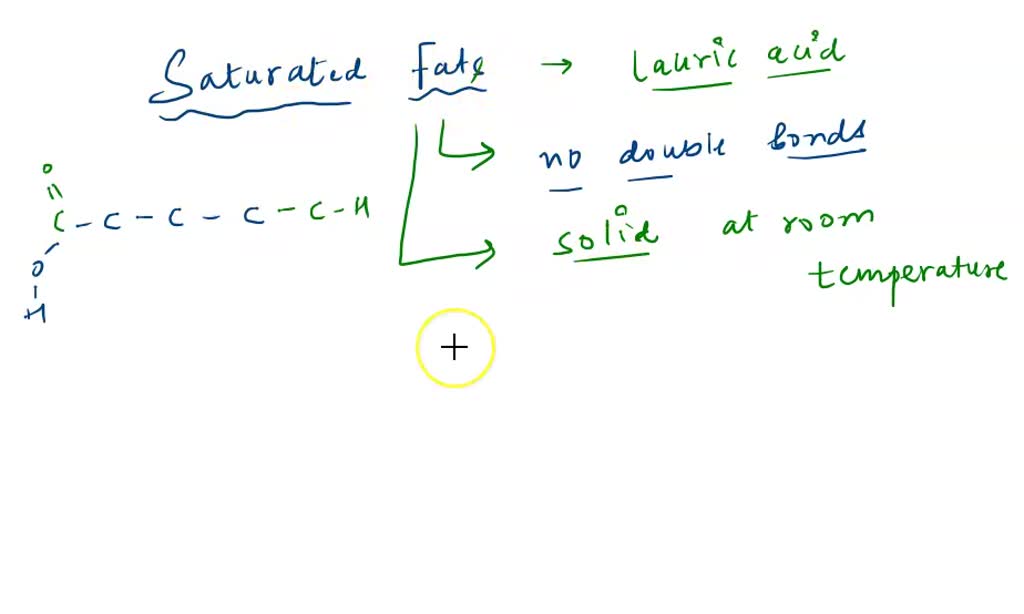 Saturated fats → Lauric acid
no double bonds
O
||
C - C - C - C - C - H
O
|
H
solid at room
temperature